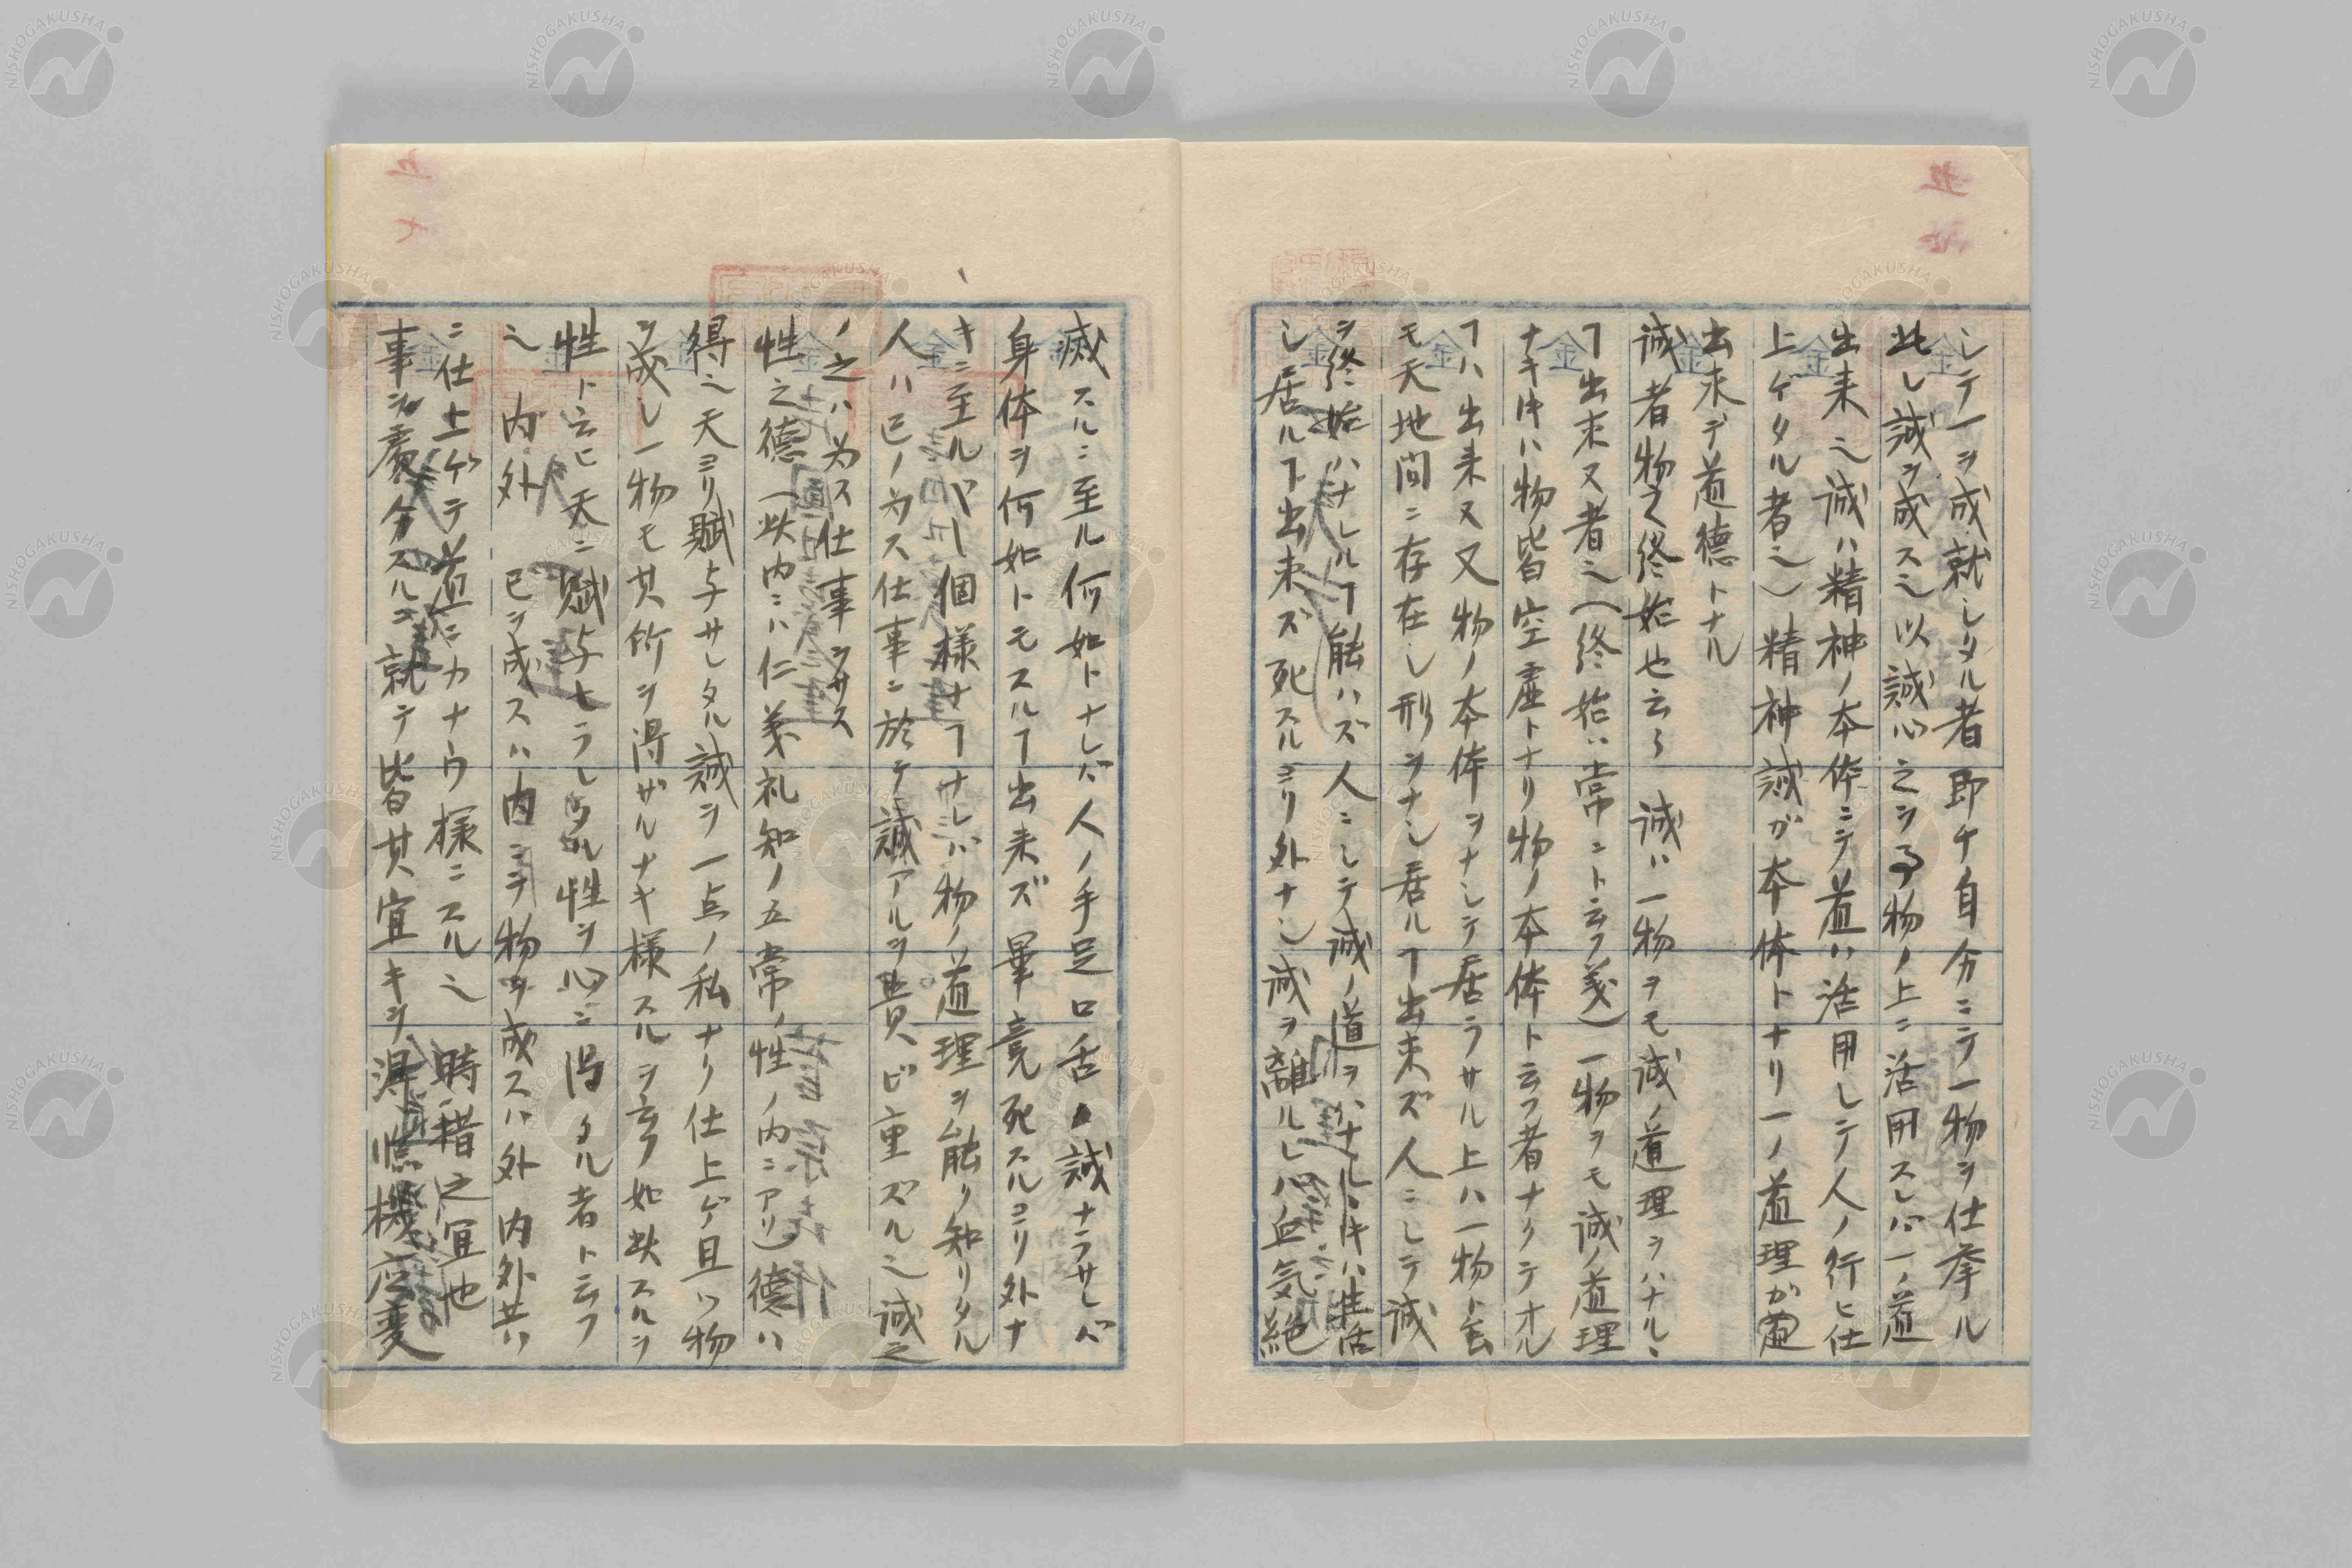 シテ一ヲ成就シタル者即チ自分ニテ一物ヲ仕挙ル
此レ誠ヲ成ス也以誠心之ヲ物ノ上ニ活用スレバ一ノ道
出来也誠ハ精神ノ本体ニテ道ハ活用シテ人ノ行ヒ仕
上ゲタル者也)精神誠ガ本体トナリ一ノ道理ガ
出来デ道徳トナル
誠者物之終始也云々 誠ハ一物ヲモ誠ノ道理ヲハナルヽ
ヿ出来又者也(終始ハ常ニト云フ義)一物ヲモ誠ノ道理
ナキ片ハ物皆空虚トナリ物ノ本体ト云フ者ナクテオル
ヿハ出来又又物ノ本体ヲナシテ居ラサル上ハ一物ト云
モ天地間ニ存在シ形ヲナシ居ルヿ出来ズ人ニシテ誠
ヲ終始ハナレルヿ能ハズ人ニシテ誠ノ道ヲハナルヽ片ハ生活
シ居ルヿ出来ズ死スルヨリ外ナシ誠ヲ離ルレハ血気絶
滅スルニ至ル何如トナレバ人ノ手足口舌誠ナラサレバ
身体ヲ何如トモスルヿ出来ズ畢竟死スルヨリ外ナ
キニ至ルベシ個様ナヿナレバ物ノ道理ヲ能ク知リタル
人ハ己ノ為ス仕事ニ於テ誠アルヲ貴ビ重ズル也誠之
ノ之ハ為ス仕事ヲサス
性之徳(此内ニハ仁義礼知ノ五常ノ性ノ内ニアリ)徳ハ
得也天ヨリ賦与サレタル誠ヲ一点ノ私ナク仕上ゲ且ツ物
ヲ成シ一物モ其所ヲ得ザルナキ様スルヲ云フ如此スルヲ
性ト云ヒ天ニ賦与セラレタル性ヲ心ニ得タル者ト云フ
也 内外 己ヲ成スハ内ニテ物ヲ成スハ外内外共ハ
ニ仕上ゲテ道ニカナウ様ニスル也 時措之宜也
事ヲ處分スルニ就テ皆其宜キヲ得臨機応変